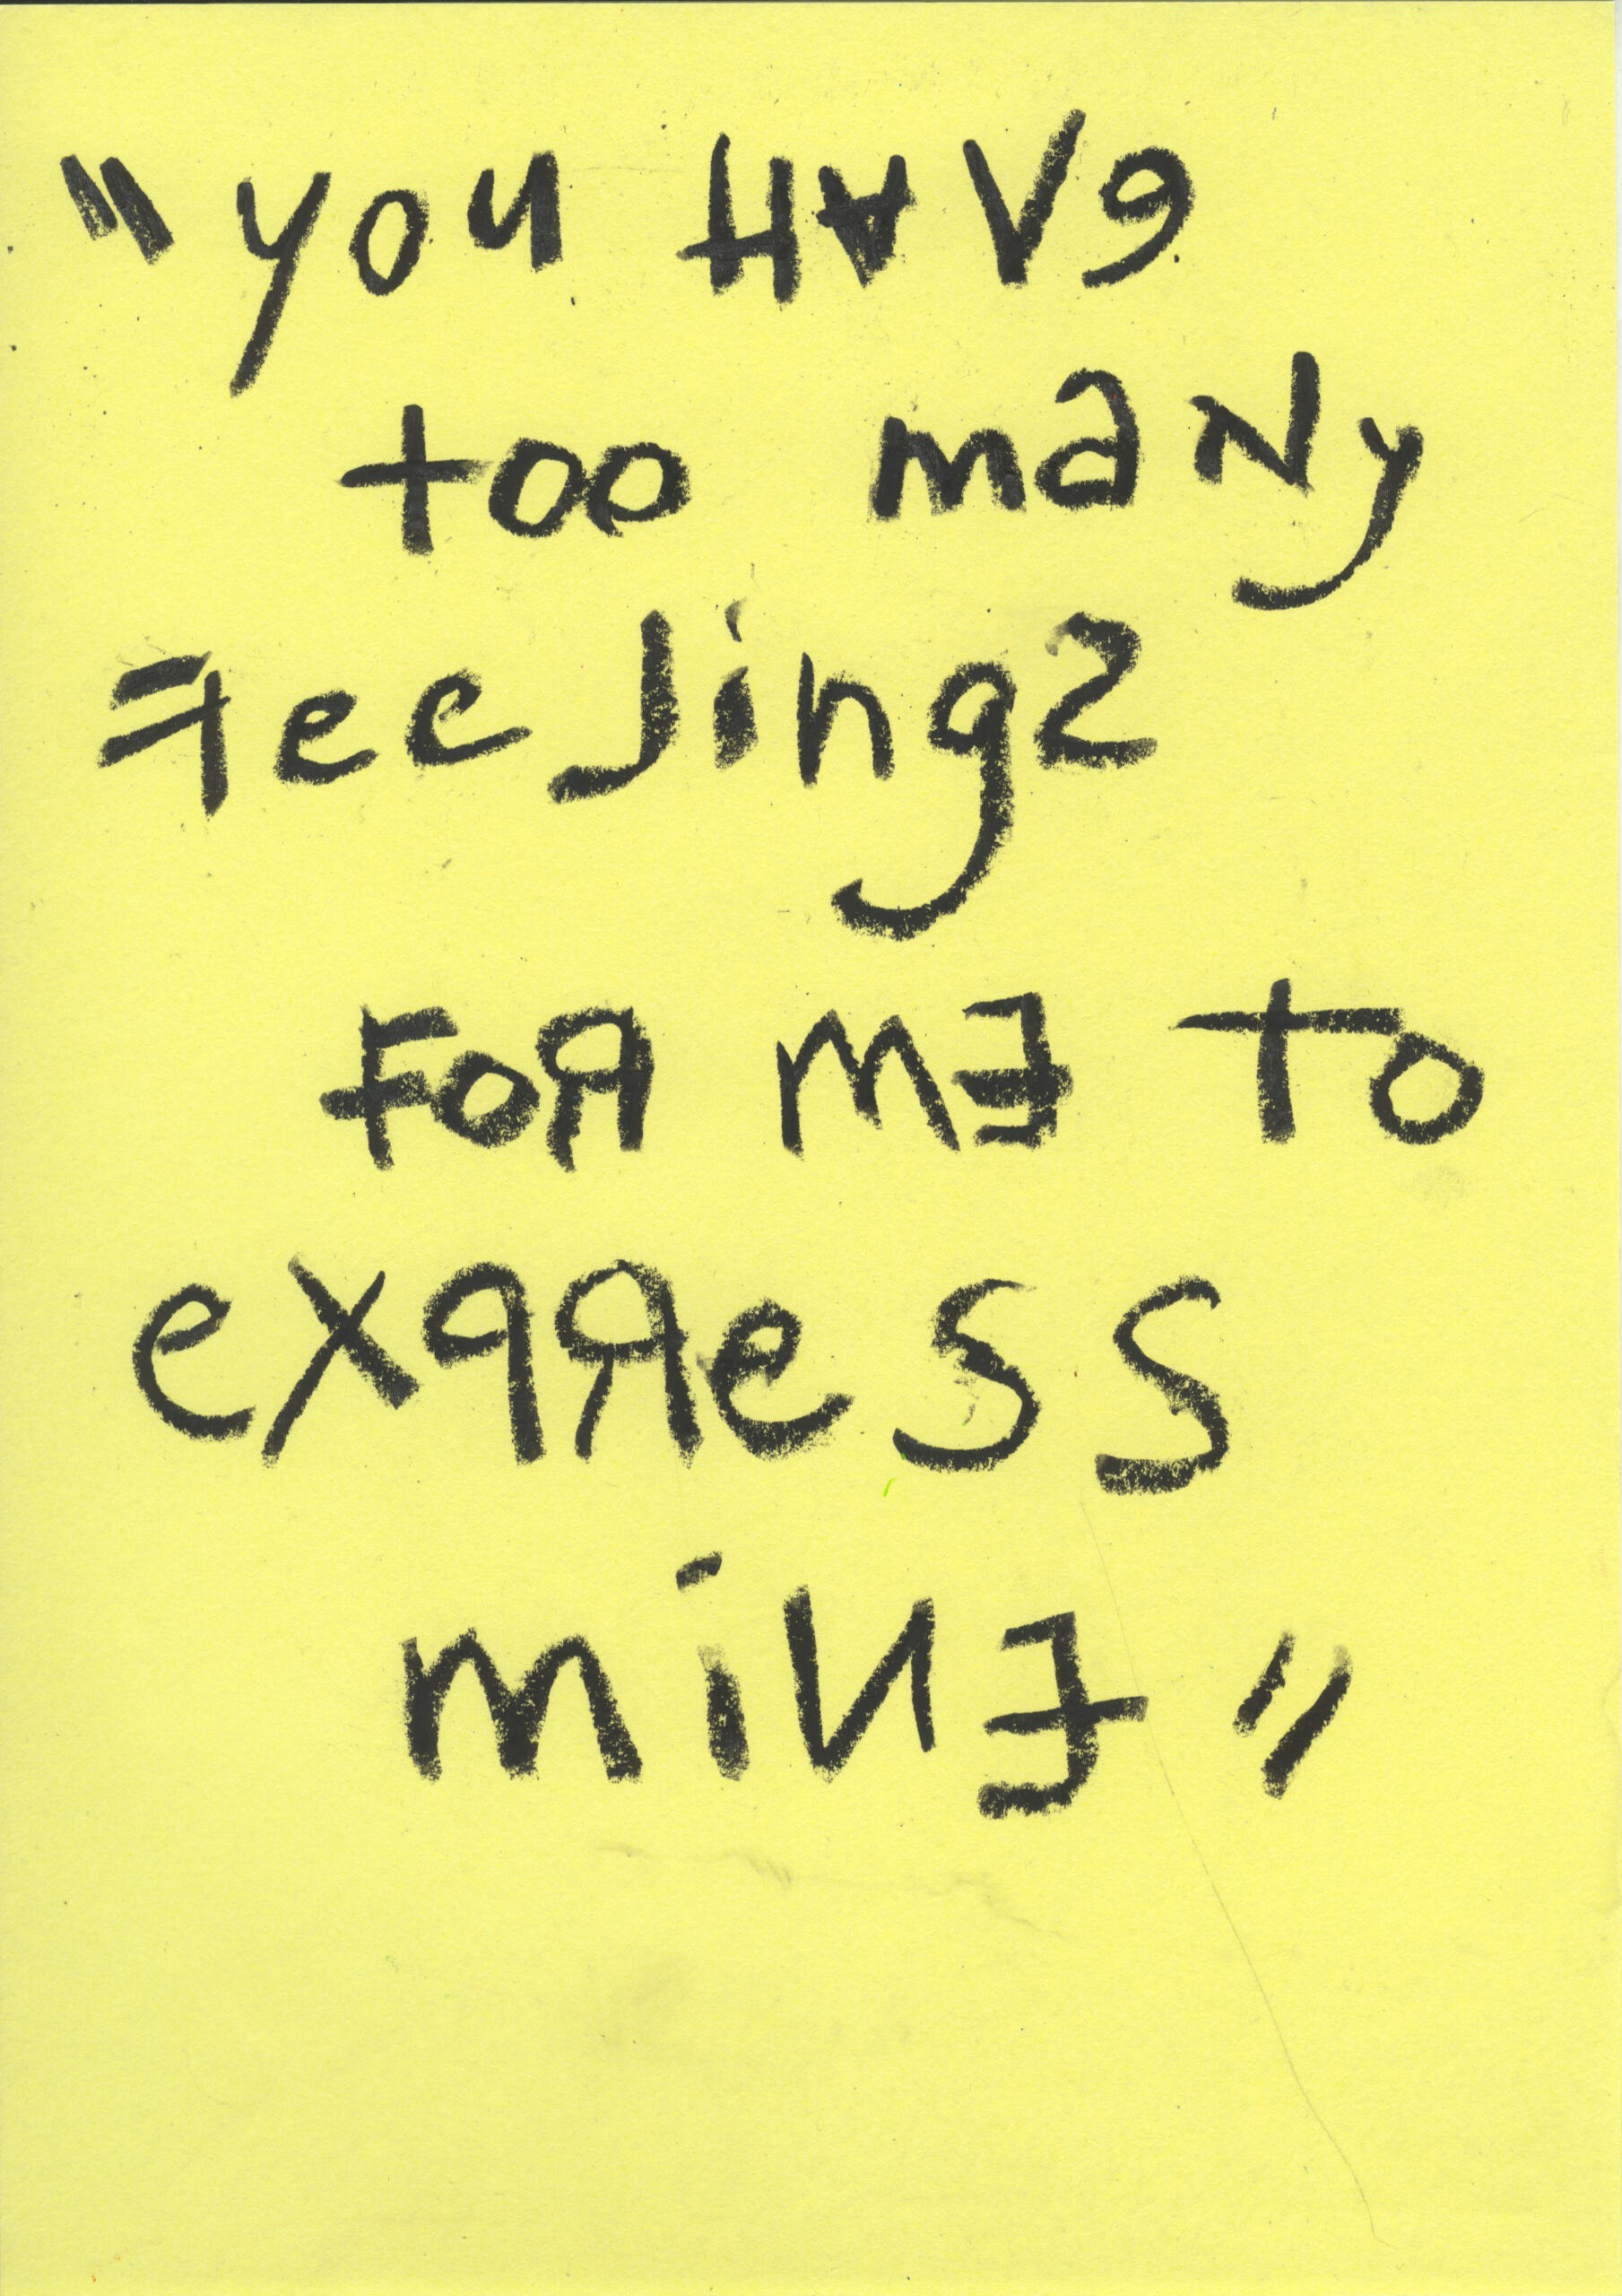 "you HAVe
too maNy
FeeLings
FoR mE to
expRess
miNE"